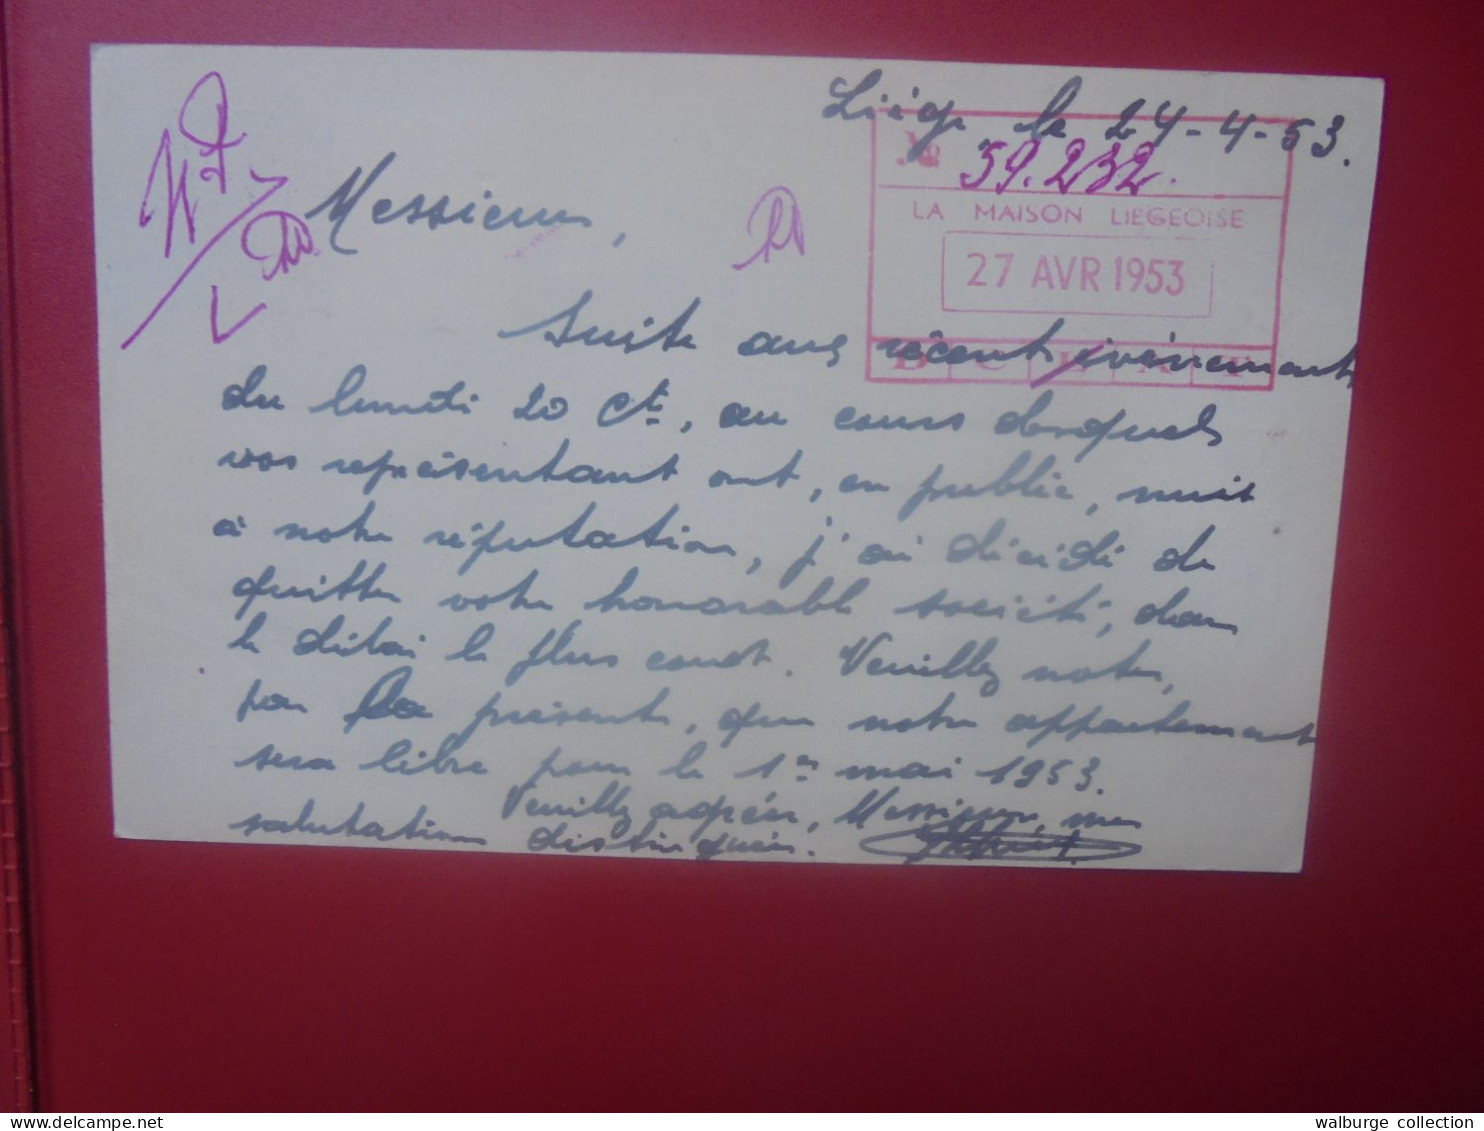 Liège, le 24-4-53.
No 59.232.
LA MAISON LIEGEOISE
27 AVR 1953
Messieurs,
Suite aux récent événements
du lundi 20 Ct., au cours desquels
vos représentant ont, en public, nuit
à notre réputation, j'ai décidé de
quitter votre honorable société, dans
le délai le plus court. Veuillez noter,
par la présente, que notre appartement
sera libre pour le 1er mai 1953.
Veuillez agréer, Messieurs, mes
salutations distinguées.
walburge collection